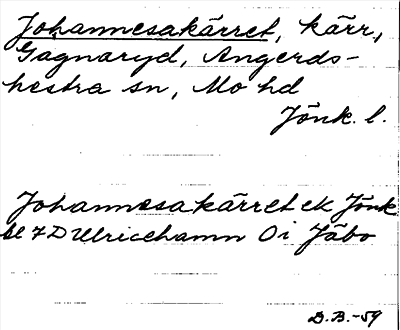 Johannesakärret, kärr,
Gagnaryd, Angerds-
hestra sn, Mo hd
Jönk. l.
Johannesakärret ek Jönk
bl 7D Ulricehamn Oi Jäbo
D.B.-59